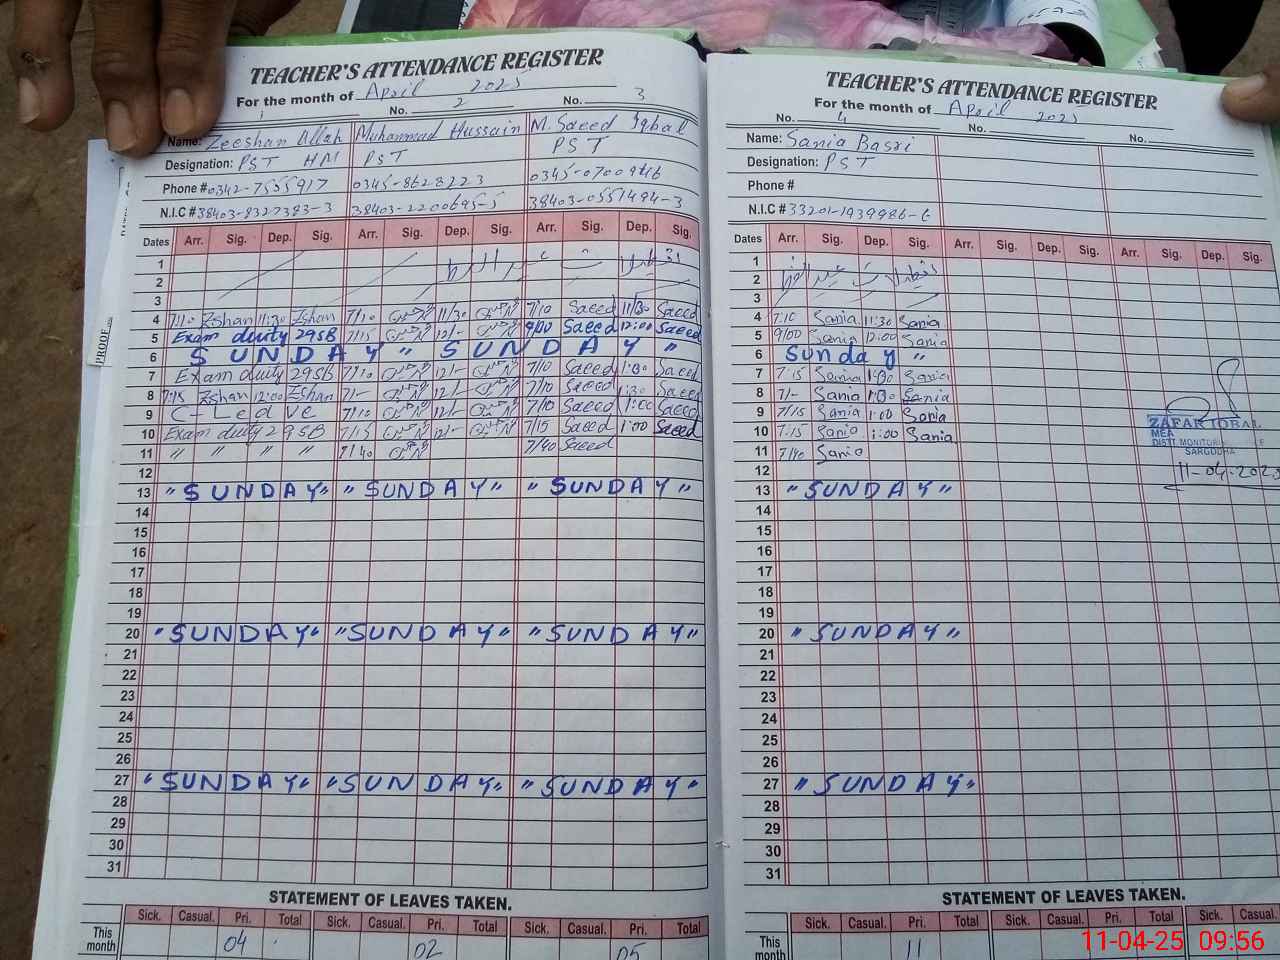 TEACHER'S ATTENDANCE REGISTER
For the month of April 2025
No. 1 No. 2 No. 3
Name: Zeeshan Allah Muhammad Hussain M. Saeed Iqbal
Designation: PST HM PST PST
Phone # 0342-7555917 0345-8628223
N.I.C # 38403-8327383-3 38403-2200695-5 38403-0551494-3
Dates Arr. Sig. Dep. Sig. Arr. Sig. Dep. Sig. Arr. Sig. Dep. Sig.
1
2
3
4 7:10 Zshan 11:30 Zshan 7/10 11/30 7/10 Saeed 11/30 Saeed
5 Exam duuity 295B 7/15 12/- 9/00 Saeed 12:00 Saeed
6 SUNDAY " SUNDAY "
7 Exam duuity 295B 7/10 12/- 7/10 Saeed 1:30 Saeed
8 7:15 Zshan 12:00 Zshan 7/- 12/- 7/10 Saeed 1:30 Saeed
9 C-Leave 7/10 12/- 7/10 Saeed 1:00 Saeed
10 Exam duuity 295B 7/15 12/- 7/15 Saeed 1:00 Saeed
11 " " " " 7/40 7/40 Saeed
12
13 "SUNDAY" "SUNDAY" "SUNDAY"
14
15
16
17
18
19
20 "SUNDAY" "SUNDAY" "SUNDAY"
21
22
23
24
25
26
27 "SUNDAY" "SUNDAY" "SUNDAY"
28
29
30
31
STATEMENT OF LEAVES TAKEN.
Sick. Casual. Pri. Total Sick. Casual. Pri. Total Sick. Casual. Pri. Total
This month 04 02 05
TEACHER'S ATTENDANCE REGISTER
For the month of April 2025
No. 4 No. No.
Name: Sania Basri
Designation: PST
Phone #
N.I.C # 33201-1939986-6
Dates Arr. Sig. Dep. Sig. Arr. Sig. Dep. Sig. Arr. Sig. Dep. Sig.
1
2
3
4 7:10 Sania 11:30 Sania
5 9/00 Sania 12:00 Sania
6 Sunday "
7 7:15 Sania 1:30 Sania
8 7/- Sania 1:30 Sania
9 7/15 Sania 1:00 Sania
10 7:15 Sania 1:00 Sania
11 7/40 Sania
12
13 "SUNDAY"
14
15
16
17
18
19
20 "SUNDAY"
21
22
23
24
25
26
27 "SUNDAY"
28
29
30
31
ZAFAR IQBAL
MEA
DISTT. MONITORING
SARGODHA
11-04-2025
STATEMENT OF LEAVES TAKEN.
Sick. Casual. Pri. Total Sick. Casual. Pri. Total Sick. Casual.
This month 11
PROOF
11-04-25 09:56